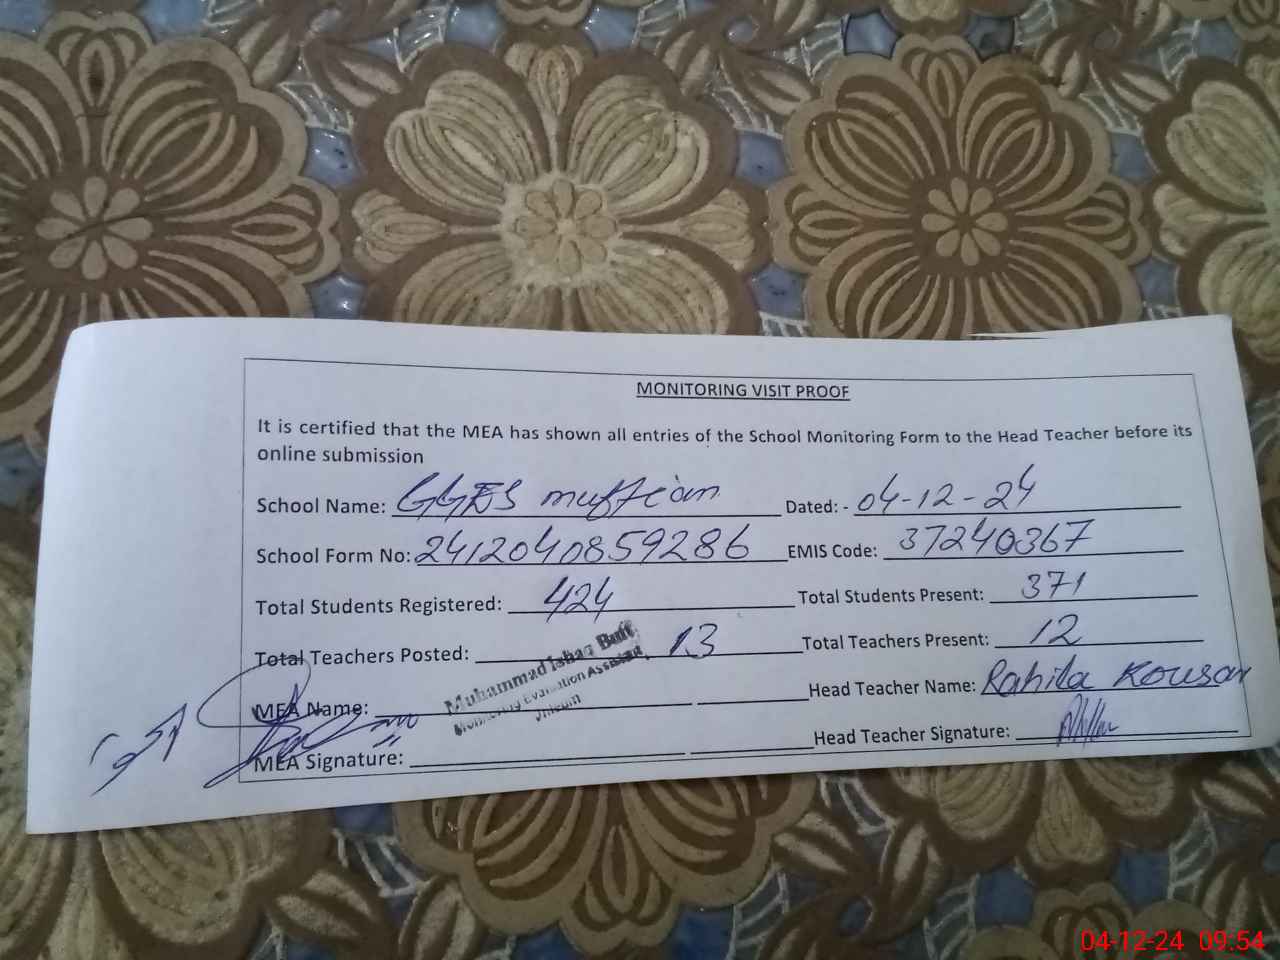 MONITORING VISIT PROOF
It is certified that the MEA has shown all entries of the School Monitoring Form to the Head Teacher before its
online submission
School Name: GGES muftian Dated: - 04-12-24
School Form No: 2412040859286 EMIS Code: 37240367
Total Students Registered: 424 Total Students Present: 371
Total Teachers Posted: 13 Total Teachers Present: 12
Muhammad Ishaq Butt
Monitoring Evaluation Assistant
Jhelum
MEA Name: Head Teacher Name: Rahila Kousar
MEA Signature: Head Teacher Signature:
04-12-24 09:54